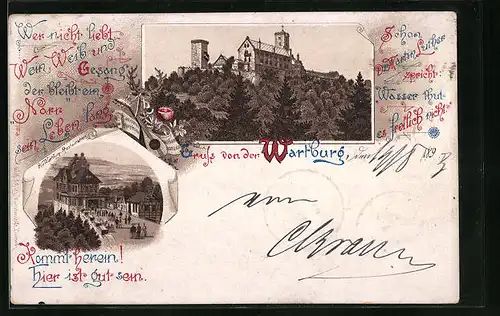 Wer nicht liebt
Wein, Weib und
Gesang,
der bleibt ein
Narr
sein Leben lang
Schon
Dr Martin Luther
spricht:
Wasser thut
es freilich nicht!
Gruss von der Wartburg,
den
von
Kommt herein!
Hier ist gut sein.